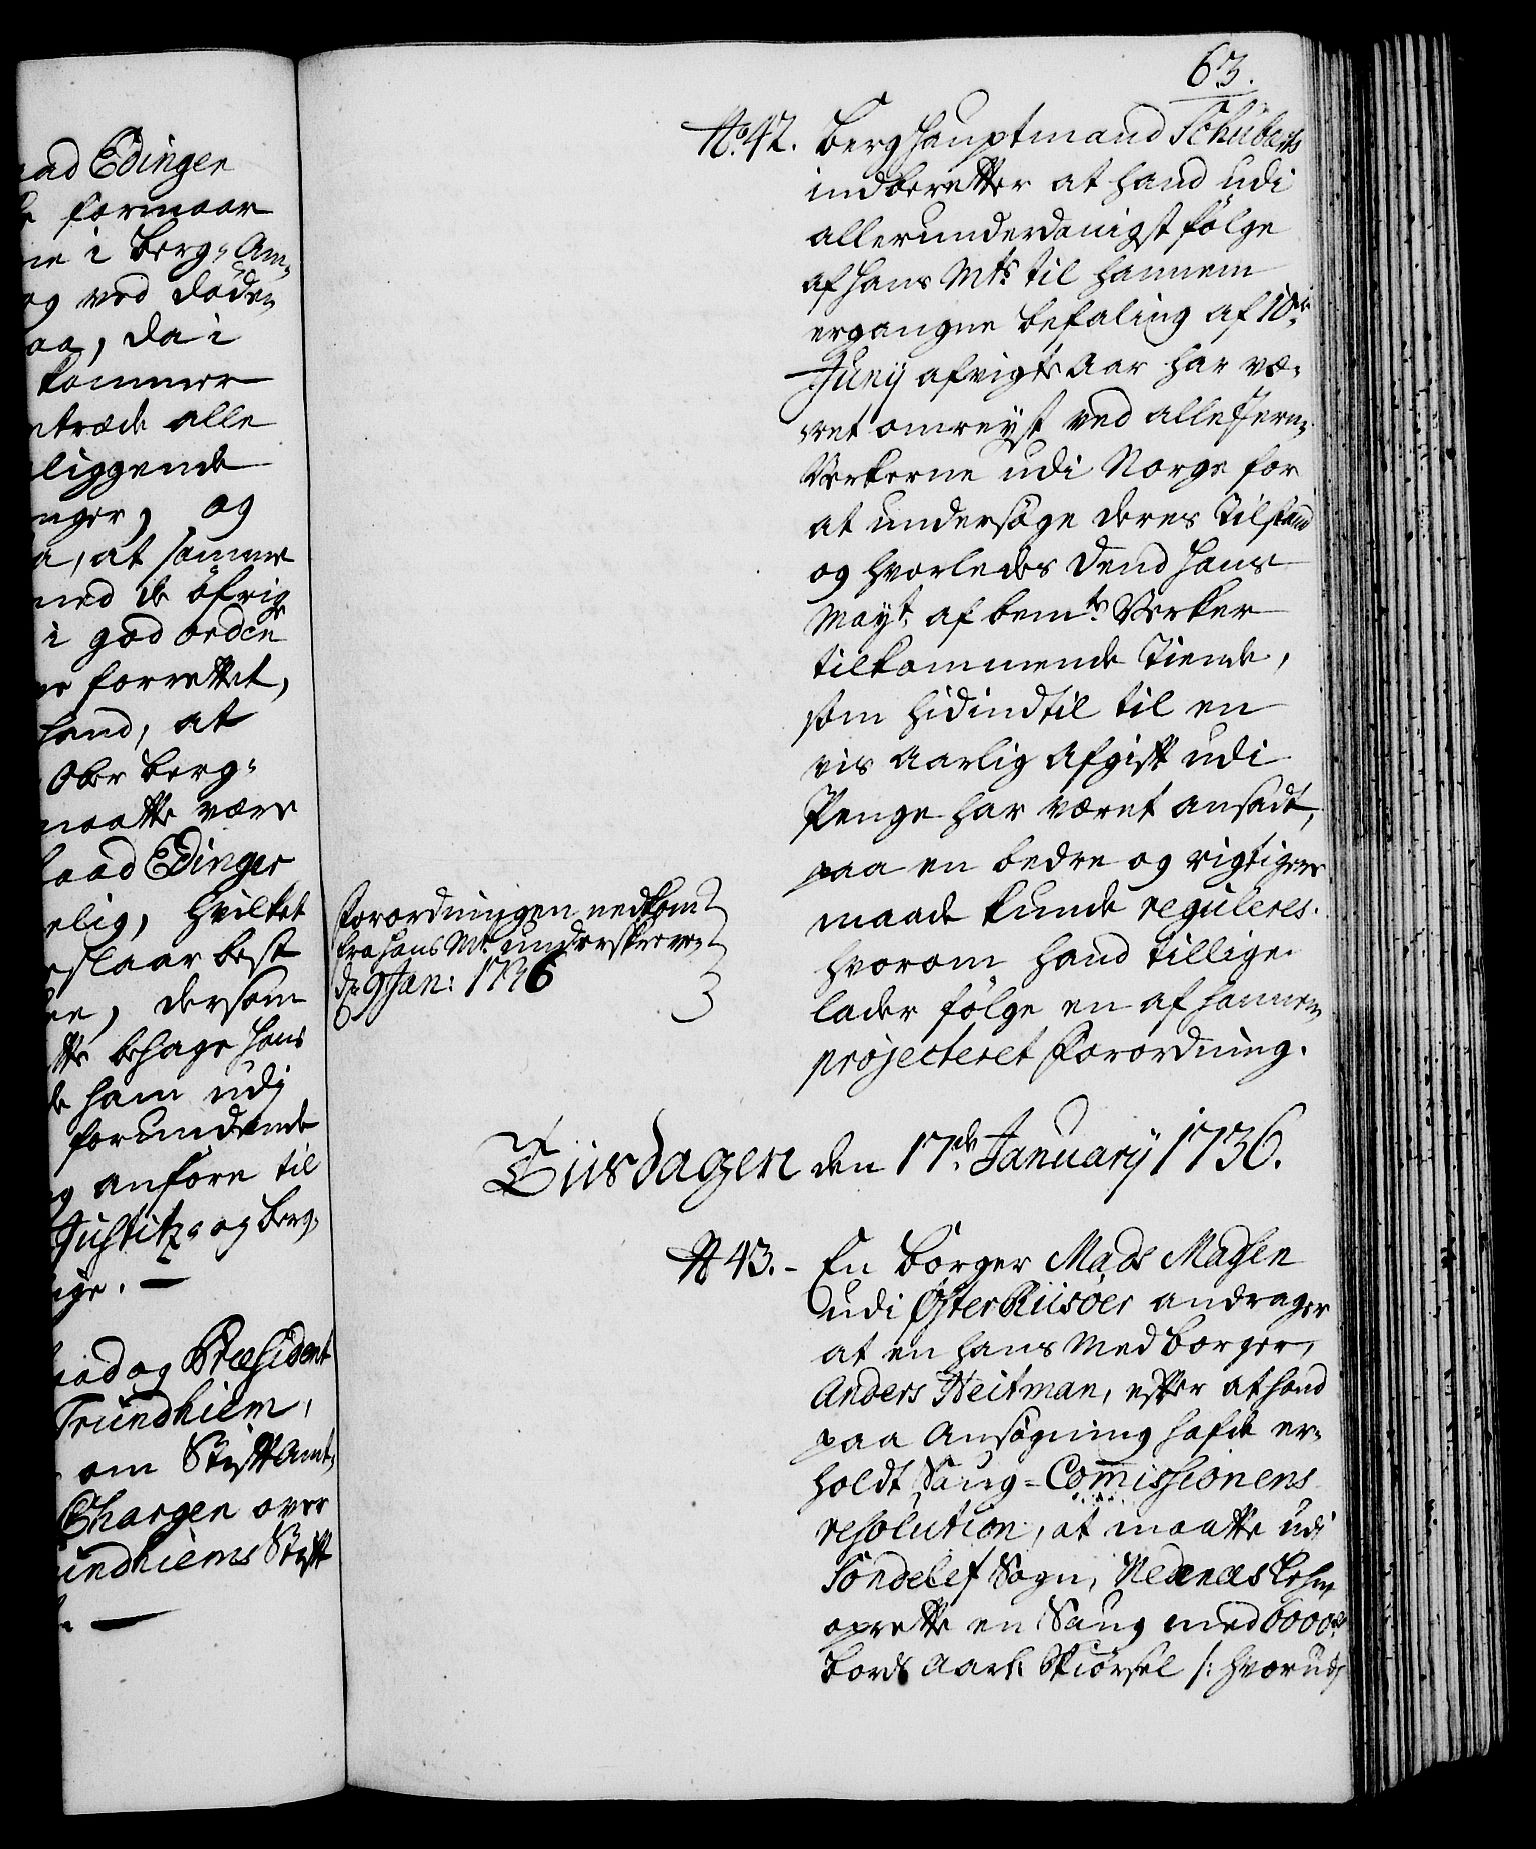 aad Edinger
formaar
ne i Berg-Am-
og ved Døde-
aa, da i
kommer
ntræde alle
liggende
nger, og
a, at samme
med de öfrig
i god orden
er forrettet,
haand, at
Ober Berg-
maatte være
Raad Edinger
elig, hvilket
eslaar best
en, dersom
tte behage Hans
de ham udj
forundende
og anføre til
Justitz- og Berg-
ige. —
raad og Præsident
Trundhiem,
om StiftAmt-
Chargen over
undhiems Stift
—
63.
No. 42. Berghauptmand Schubarts
indberetter at hand udi
allerunderdanigst følge
af Hans Mts til hannem
ergangne befaling af 10de
Junij afvigte Aar har væ-
-ret omreyst ved alle Jern-
Verkerne udi Norge for
at undersøge deres Tilstand
og hvorledes dend Hans
Mayt. af bemte Verker
tilkommende Tiende,
som hidindtil til en
vis Aarlig Afgift udi
Penge har været ansadt,
paa en bedre og rigtigere
maade kunde reguleres.
hvorom hand tillige
lader følge en af hannem
projecteret Forordning.
Forordningen nedkom
fra Hans Mt. underskreven
d. 9 Jan: 1736
Tiisdagen den 17de January 1736.
N 43. - En Borger Mads Madsen
udi ØsterRiisøer andrager
at en hans Medborger,
Anders Heitman, efter at hand
paa Ansøgning hafde er-
holdt Saug-Comissionens
resolution, at maatte udi
Søndelef Sogn, Nedenes Lehn
oprette en Saug med 6000de
bords Aarl. Skiørsel /: hvorudj